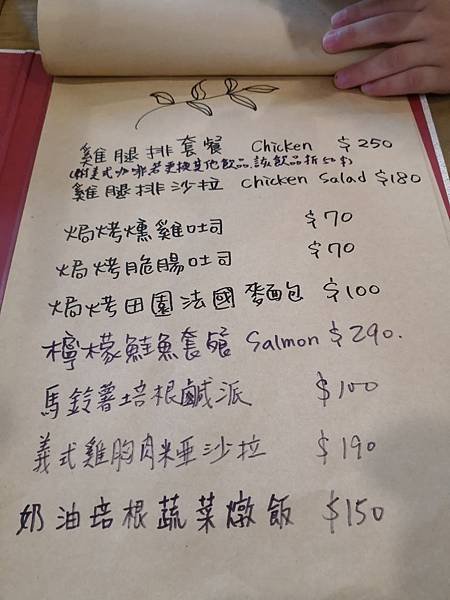 雞腿排套餐 Chicken $250
(附美式咖啡若更換其他飲品,該飲品折50$)
雞腿排沙拉 Chicken Salad $180
焗烤燻雞吐司 $70
焗烤脆腸吐司 $70
焗烤田園法國麵包 $100
檸檬鮭魚套餐 Salmon $290.
馬鈴薯培根鹹派 $100
義式雞胸肉米亞沙拉 $190
奶油培根蔬菜燉飯 $150